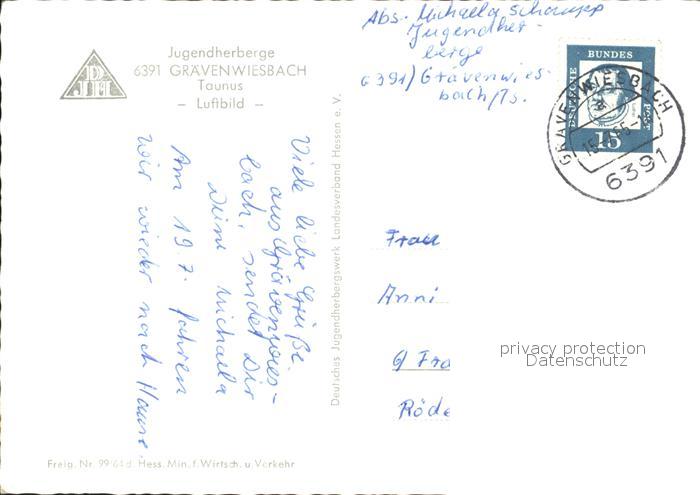 Jugendherberge
6391 GRÄVENWIESBACH
Taunus
– Luftbild –
DJH
Abs. Michaela
Jugendher-
berge
6391) Grävenwies-
bach/Ts.
DEUTSCHE BUNDESPOST
15
GRÄVENWIESBACH
6391
Viele liebe Grüße
aus Grävenwies-
bach, sendet Dir
Deine Michaela
Am 19.7. fahren
wir wieder nach Hause.
Deutsches Jugendherbergswerk Landesverband Hessen e. V.
Frau
Anni
6 Fra
Röde
privacy protection
Datenschutz
Freig. Nr. 99/64 d. Hess. Min. f. Wirtsch. u. Verkehr